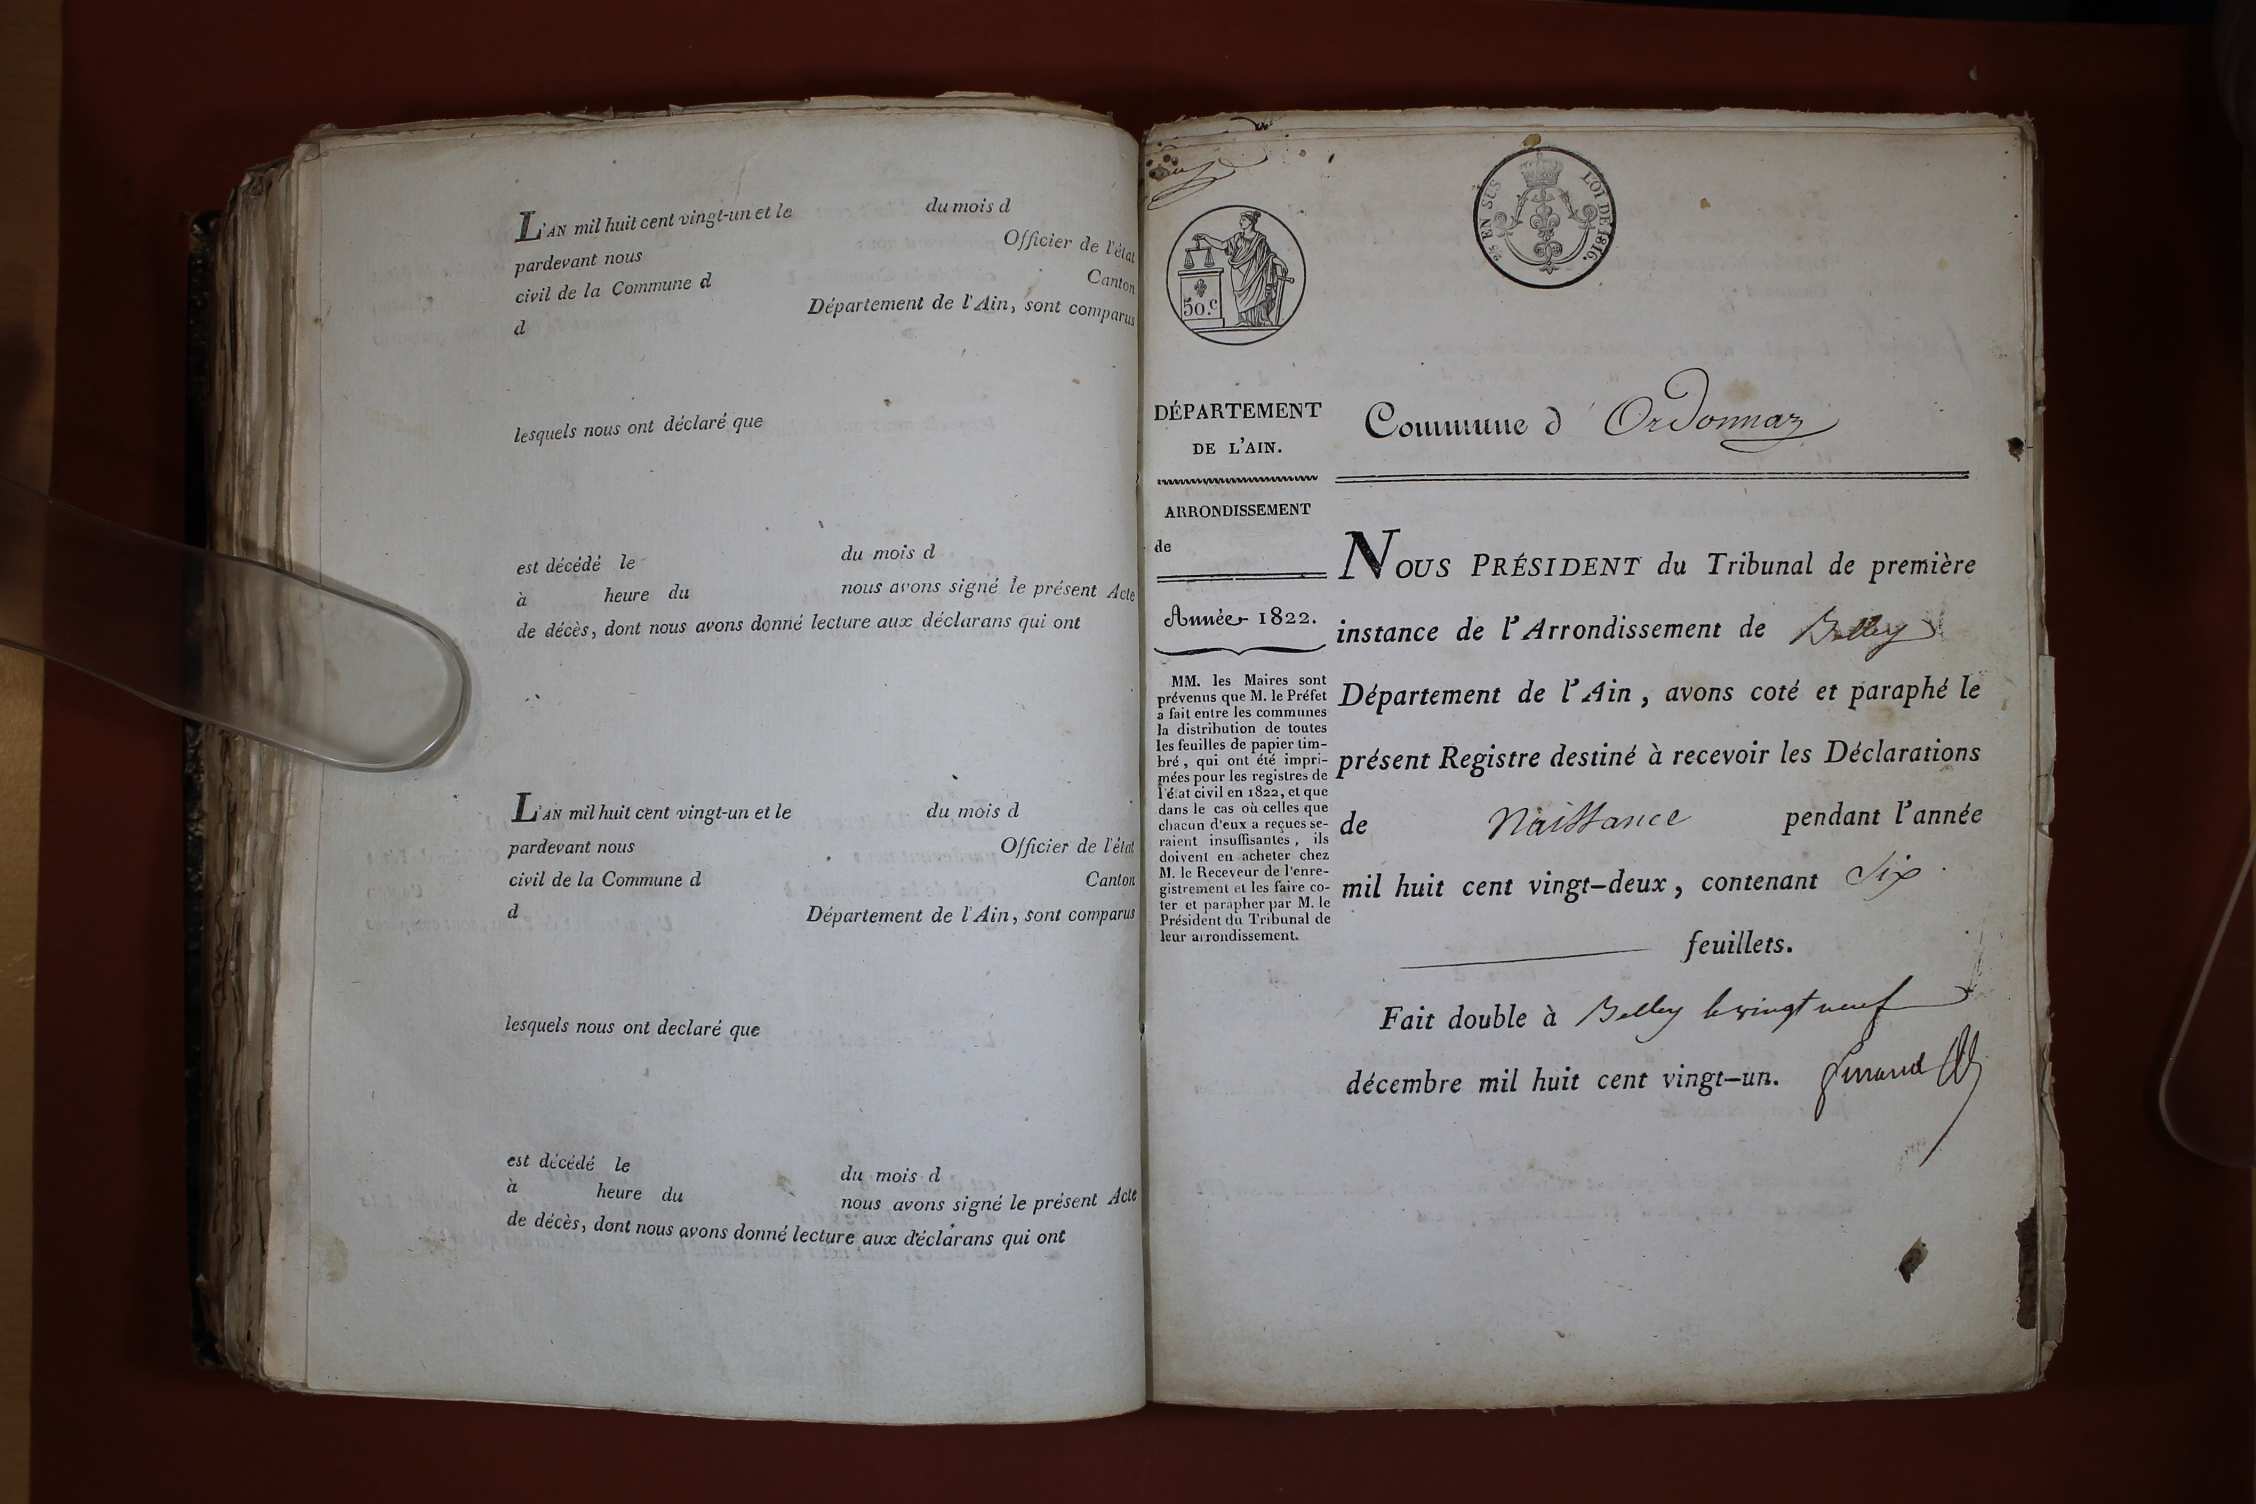 L'AN mil huit cent vingt-un et le du mois d
pardevant nous Officier de l'état
civil de la Commune d Canton
d Département de l'Ain, sont comparus
lesquels nous ont déclaré que
est décédé le du mois d
à heure du nous avons signé le présent Acte
de décès, dont nous avons donné lecture aux déclarans qui ont
L'AN mil huit cent vingt-un et le du mois d
pardevant nous Officier de l'état
civil de la Commune d Canton
d Département de l'Ain, sont comparus
lesquels nous ont declaré que
est décédé le du mois d
à heure du nous avons signé le présent Acte
de décès, dont nous avons donné lecture aux déclarans qui ont
EN SUS LOI DE 1816.
50.c
DÉPARTEMENT
DE L'AIN.
ARRONDISSEMENT
de
Année 1822.
MM. les Maires sont
prévenus que M. le Préfet
a fait entre les communes
la distribution de toutes
les feuilles de papier tim-
bré, qui ont été impri-
mées pour les registres de
l'état civil en 1822, et que
dans le cas où celles que
chacun d'eux a reçues se-
raient insuffisantes, ils
doivent en acheter chez
M. le Receveur de l'enre-
gistrement et les faire co-
ter et parapher par M. le
Président du Tribunal de
leur arrondissement.
Commune d'Ordonnaz
NOUS PRÉSIDENT du Tribunal de première
instance de l'Arrondissement de Belley
Département de l'Ain, avons coté et paraphé le
présent Registre destiné à recevoir les Déclarations
de Naissance pendant l'année
mil huit cent vingt-deux, contenant Six
feuillets.
Fait double à Belley le vingt neuf
décembre mil huit cent vingt-un.